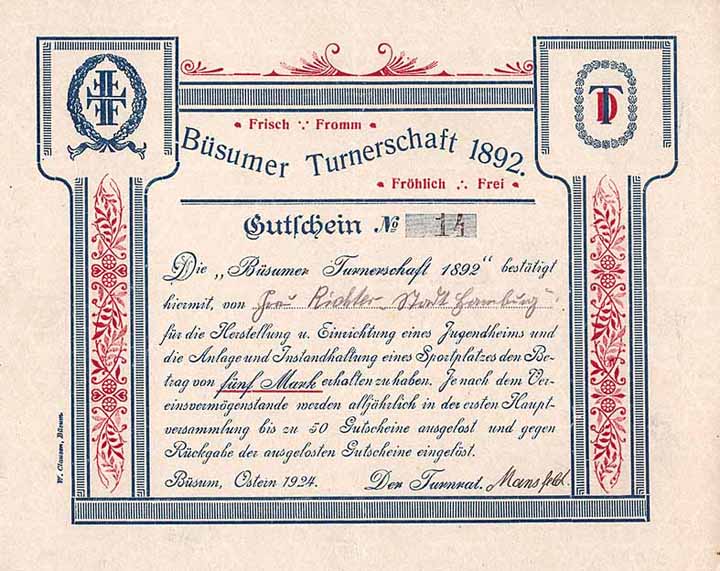 Frisch ∵ Fromm
Büsumer Turnerschaft 1892.
Fröhlich ∴ Frei
TD
Gutschein № 14
Die „Büsumer Turnerschaft 1892" bestätigt
hiermit, von Frau Richter „Stadt Hamburg"
für die Herstellung u. Einrichtung eines Jugendheims und
die Anlage und Instandhaltung eines Sportplatzes den Be-
trag von fünf Mark erhalten zu haben. Je nach dem Ver-
einsvermögenstande werden alljährlich in der ersten Haupt-
versammlung bis zu 50 Gutscheine ausgelost und gegen
Rückgabe der ausgelosten Gutscheine eingelöst.
Büsum, Ostern 1924. Der Turnrat. Mansfeld.
W. Clausen, Büsum.